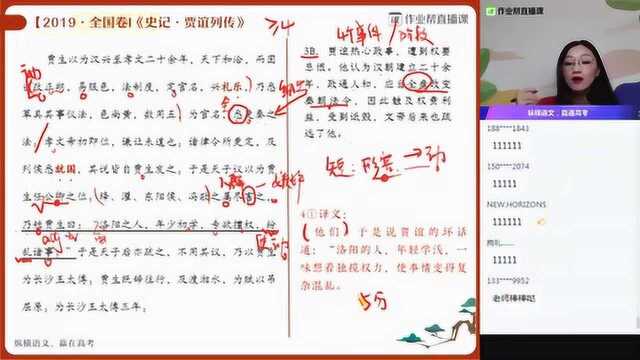 【2019·全国卷Ⅰ《史记·贾谊列传》
≥4
4个事件/阶段
作业帮直播课
贾生以为汉兴至孝文二十余年,天下和洽,而固
当改正朔,易服色,法制度,定官名,兴礼乐,乃悉
草具其事仪法,色尚黄,数用五,为官名,悉更秦之
法。孝文帝初即位,谦让未遑也。诸律令所更定,及
列侯悉就国,其说皆自贾生发之。于是天子议以为贾
生任公卿之位。绛、灌、东阳侯、冯敬之属尽害之,
乃短贾生曰:“洛阳之人,年少初学,专欲擅权,纷
乱诸事。”于是天子后亦疏之,不用其议,乃以贾生
为长沙王太傅。贾生既辞往行,及渡湘水,为赋以吊
屈原。为长沙王太傅三年,
3B. 贾谊热心政事,遭到权要
忌恨。他认为汉朝建立二十余
年,政通人和,应当全盘改变
秦朝法令,因此触及权贵利
益,受到诋毁,文帝后来也疏
远了他。
短:形容→动
4①译文:
(他们)于是说贾谊的坏话
道:“洛阳的人,年轻学浅,一
味想着独揽权力,使事情变得复
杂混乱。
5分
纵横语文、赢在高考
作业帮直播课
纵横语文,直通高考
188****1841
111111
150****2074
111111
NEW.HORIZONS
111111
111111
133****9952
老师棒棒哒